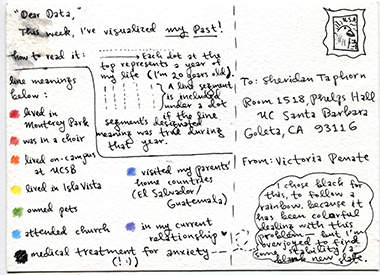 "Dear Data,"
This week, I've visualized my Past!
how to read it:
Each dot at the
top represents a year of
my life (I'm 20 years old).
A line segment
is included
under a dot
if the line
segment's designated
meaning was true during
that year.
line meanings
below:
lived in
Monterey Park
was in a choir
lived on-campus
at UCSB
lived in Isla Vista
owned pets
attended church
medical treatment for anxiety
(!:)
visited my parents'
home countries
(El Salvador/
Guatemala)
in my current
relationship ♥
USA
To: Sheridan Taphorn
Room 1518, Phelps Hall
UC Santa Barbara
Goleta, CA 93116
From: Victoria Penate
I chose black for
this, to follow a
rainbow, because it
has been colorful
dealing with this
problem - but I'm
overjoyed to find
some stability/a
blank new slate.